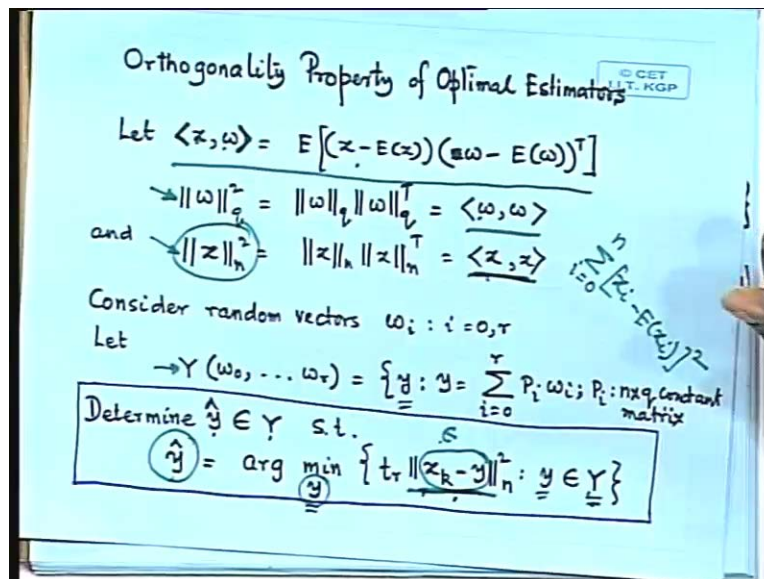 Orthogonality Property of Optimal Estimators
© CET
I.I.T. KGP
Let <x, ω> = E[(x - E(x))(ω - E(ω))ᵀ]
‖ω‖²_q = ‖ω‖_q ‖ω‖_qᵀ = <ω, ω>
and ‖x‖²_n = ‖x‖_n ‖x‖_nᵀ = <x, x>
Σ_{i=0}^{n} [x_i - E(x_i)]²
Consider random vectors ω_i : i = 0, r
Let
→ Y(ω_0, ... ω_r) = {y : y = Σ_{i=0}^{r} P_i ω_i; P_i : n×q constant
matrix
Determine ŷ ∈ Y s.t.
ŷ = arg min_y {tr ‖x_k - y‖²_n : y ∈ Y}